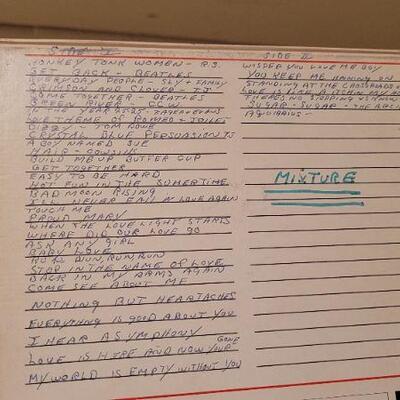 SIDE I
HONKEY TONK WOMEN - R.S.
GET BACK - BEATLES
EVERYDAY PEOPLE - SLY + FAMILY
CRIMSON AND CLOVER - TJ
COME TOGETHER - BEATLES
GREEN RIVER - CCW
IN THE YEAR 2525 - ZAGER + EVANS
LOVE THEME OF ROMEO + JULIET
DIZZY - TOM ROWE
CRYSTAL BLUE PERSUASION TJ
A BOY NAMED SUE
HAIR - COWSILK
BUILD ME UP BUTTER CUP
GET TOGETHER
EASY TO BE HARD
HOT FUN IN THE SUMERTIME
BAD MOON RISING
I'LL NEVER FALL N LOVE AGAIN
TOUCH ME
PROUD MARY
WHEN THE LOVE LIGHT STARTS
WHERE DID OUR LOVE GO
ASK ANY GIRL
BABY LOVE
RUN, RUN, RUN
STOP IN THE NAME OF LOVE
BACK IN MY ARMS AGAIN
COME SEE ABOUT ME
NOTHING BUT HEARTACHES
EVERYTHING IS GOOD ABOUT YOU
I HEAR A SYMPHONY
LOVE IS HERE AND NOW YOUR GONE
MY WORLD IS EMPTY WITHOUT YOU
SIDE II
WISPER YOU LOVE ME BOY
YOU KEEP ME HANGING ON
STANDING AT THE CROSSROADS
LOVE IS LIKE A ITCHIN
THERES STOPPING US NOW
SUGAR - SUGAR - THE ARCH
AQUARIUS -
MIXTURE